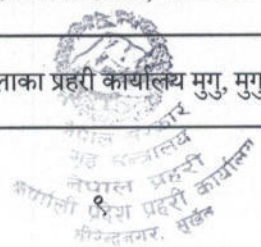 ाका प्रहरी कार्यालय मुगु, मुगु
नेपाल सरकार
गृह मन्त्रालय
नेपाल प्रहरी
कर्णाली प्रदेश प्रहरी कार्यालय
वीरेन्द्रनगर, सुर्खेत
९